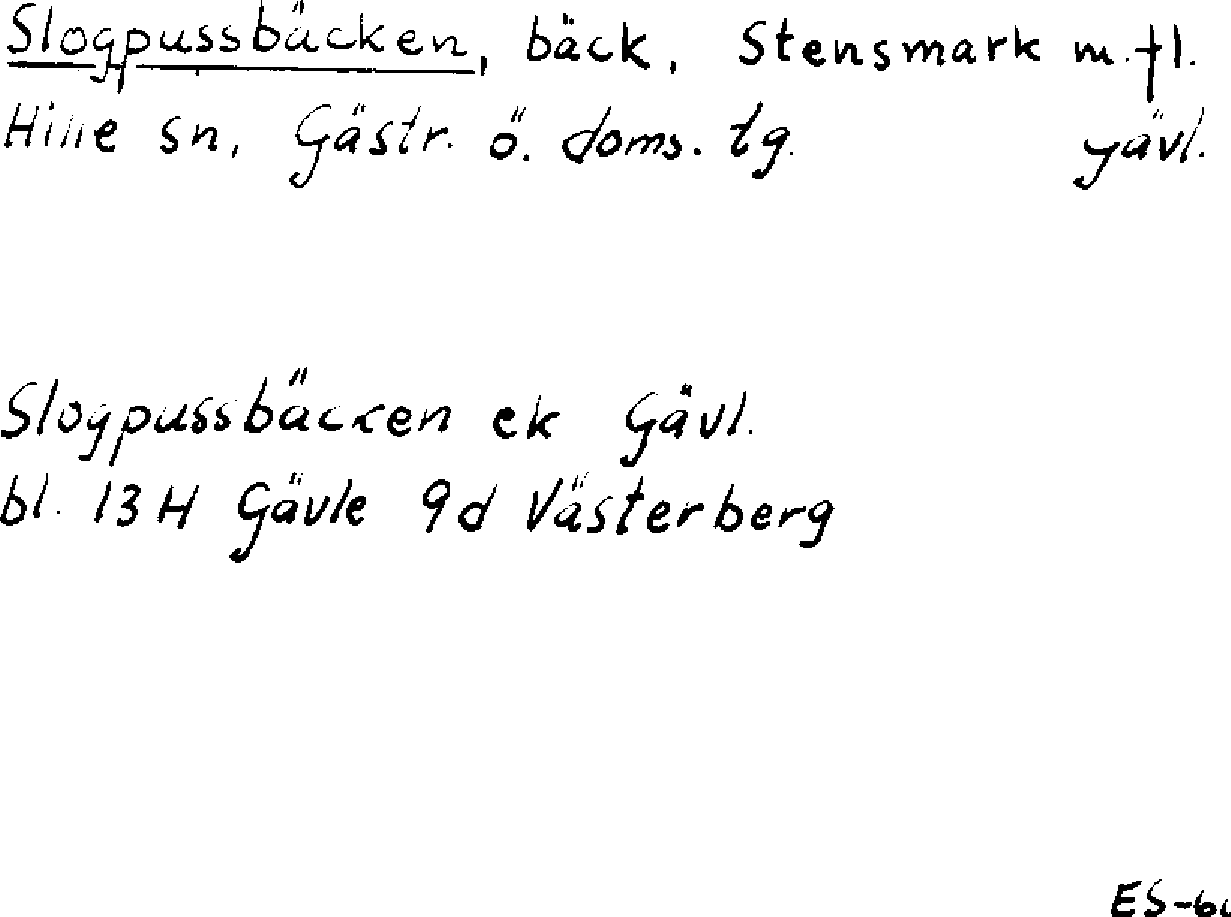 Slogpussbäcken, bäck, Stensmark m.fl.
Hille sn, Gästr. ö. doms. tg. Gävl.
Slogpussbäcken ek Gävl.
bl. 13H Gävle 9d Västerberg